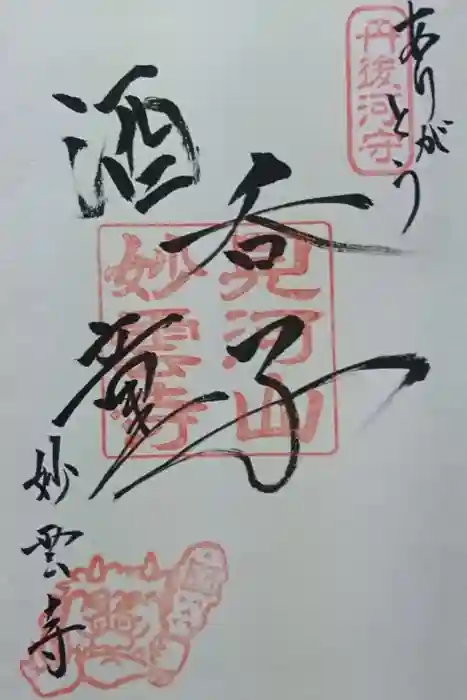 ありがとう
丹後河守
酒呑童子
見河山
妙雲寺
妙雲寺